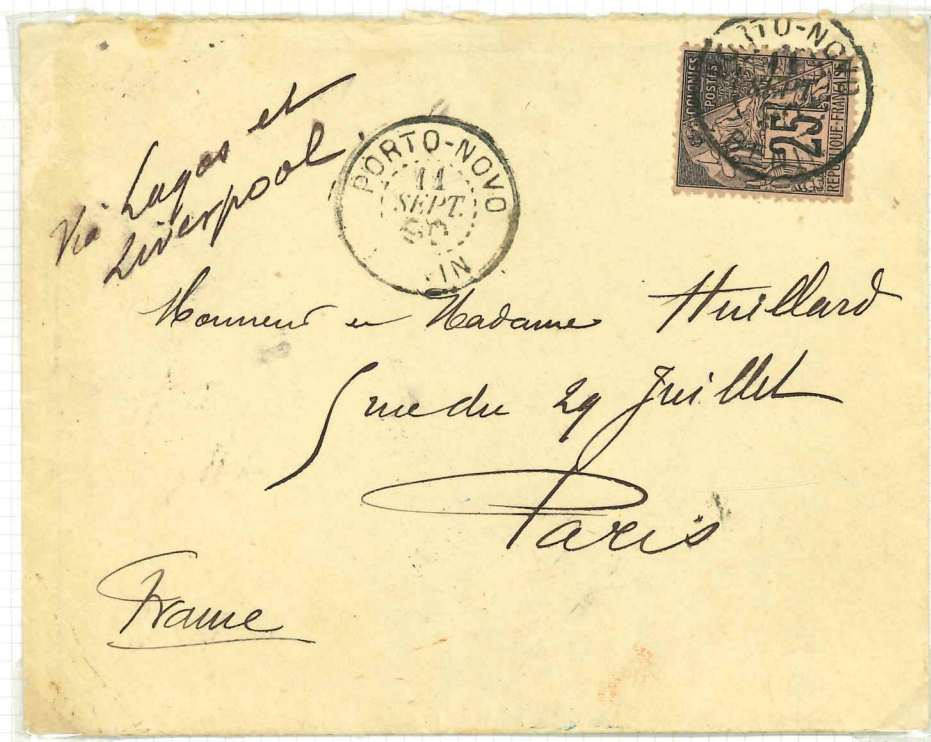 Via Lagos et
Liverpool.
PORTO-NOVO
11
SEPT.
90
COLONIES
POSTES
25
REPUBLIQUE FRANÇAISE
Monsieur et Madame Huillard
5 rue du 29 Juillet
Paris
France